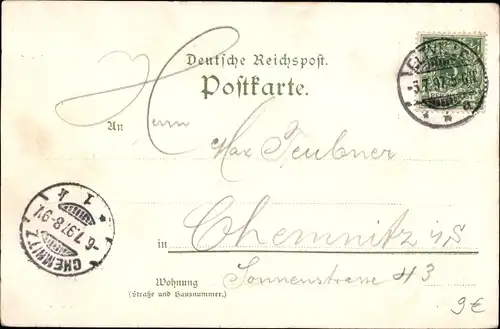 Deutsche Reichspost.
Postkarte.
An Herrn
Max Teubner
in Chemnitz i/S
Wohnung Sonnenstrasse 43
(Straße und Hausnummer.)
5.7.97
CHEMNITZ
6.7.97.8-9V.
1 k
9€